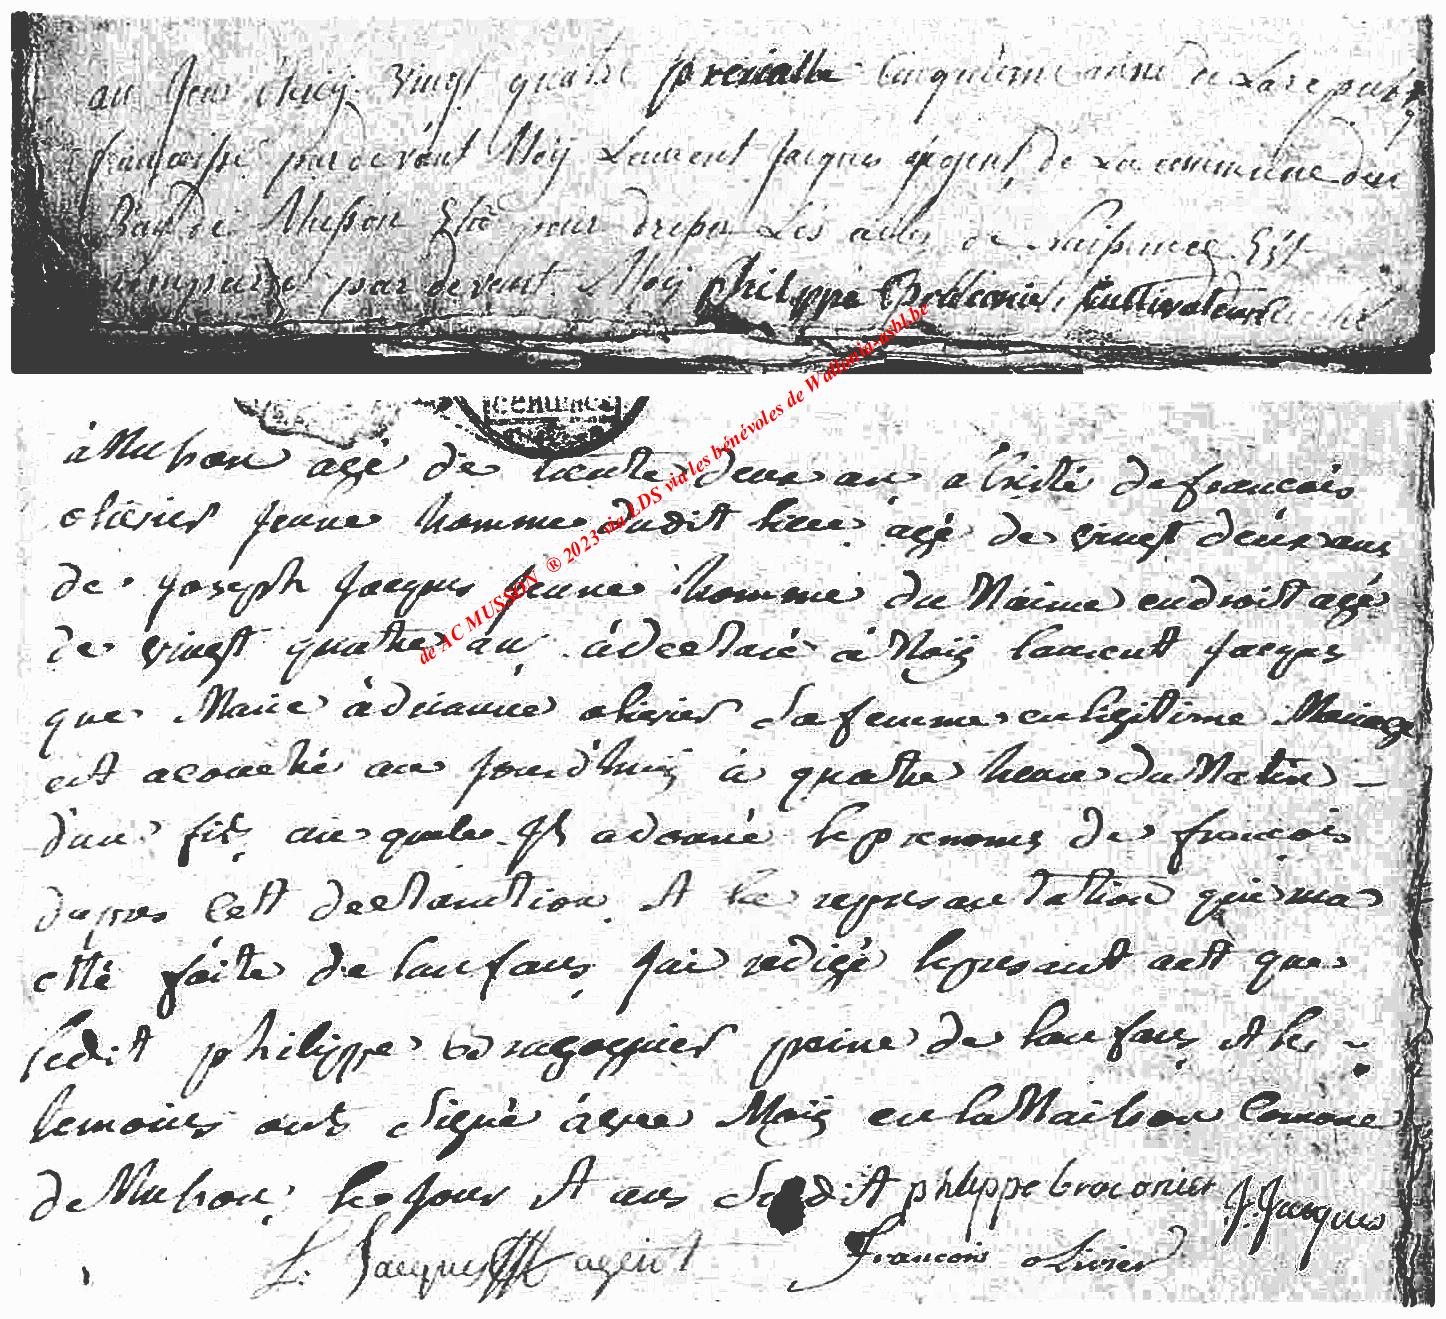 au jour d'huy vingt quatre prerialle cinquieme année de la republ
française pardevant Moÿ Laurent Jacques agent de La commune du
Ban de Musson Elu pour dresser Les actes de naissances Est
comparu par devant Moÿ philippe Braconnier, Cultivateur
à Musson agé de trente deux an assisté de françois
olivier jeune homme dudit lieu agé de vingt deux ans
de joseph jacques jeune homme du Maime endroit agé
de vingt quatre an à declaré à Moÿ laurent jacques
que Marie àdrianne olivier Sa femme en legitime Mariage
est acouché au jourd'huÿ à quatre heure du Matin –
d'un fils auquele Il a donné le prenoms de françois
dapres cett declaration et la representation qui ma
etté faite de lanfans jai redigé le presant act que
ledit philippe bragognier peire de lanfans et les ~
temoins onts Signé àvec Moÿ en la Maison Comone
de Musson les jour et ans Sudit philippe braconier J: Jacques
L. Jacques agent francois olivier
cenumes
de AC MUSSON ® 2023 via LDS via les bénévoles de Wallonia-asbl.be